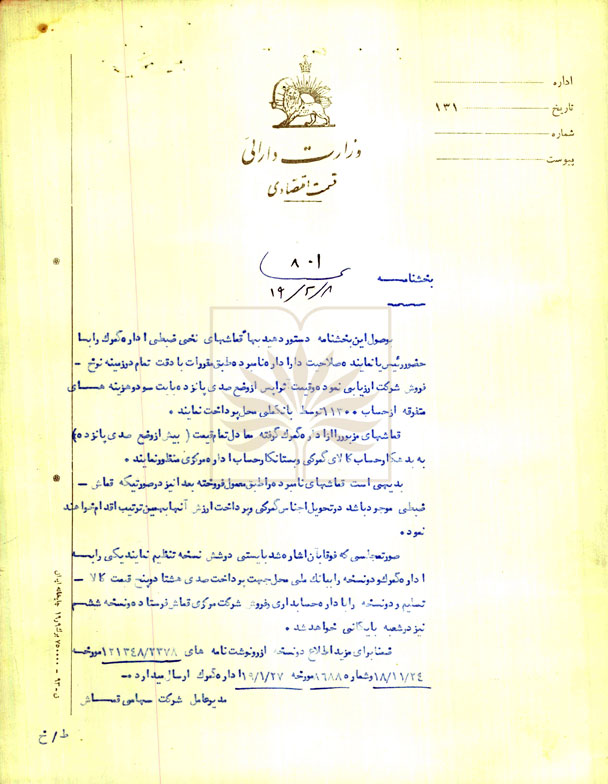 اداره
تاریخ ۱۳۱
شماره
پیوست
وزارت دارائی
قسمت اقتصادی
بخشنامه
۸۰۱
۱۹/۲/۸
بوصول این بخشنامه دستور دهید بهای قماشهای نخی ضبطی اداره گمرک را با
حضور رئیس یا نماینده صلاحیت دار اداره نامبرده طبق مقررات با دقت تمام در زمینه نرخ -
فروش شرکت ارزیابی نموده و قیمت را پس از وضع صدی پانزده بابت سود و هزینه های
متفرقه از حساب ۱۱۳۰۰ توسط بانک ملی محل پرداخت نمایند ۰
قماشهای مزبور را از اداره گمرک گرفته معادل تمام قیمت ( پیش از وضع صدی پانزده )
به بدهکار حساب کالای گمرکی و بستانکار حساب اداره مرکزی منظور نمایند ۰
بدیهی است قماشهای نامبرده را طبق معمول فروخته بعدا نیز در صورتیکه قماش -
ضبطی موجود باشد در تحویل اجناس گمرکی و پرداخت ارزش آنها بهمین ترتیب اقدام خواهند
نمود ۰
صورتمجلسی که فوقا بآن اشاره شد بایستی در شش نسخه تنظیم نمایند یکی را به
اداره گمرک و دو نسخه را ببانک ملی محل جهت پرداخت صدی هشتاد و پنج قیمت کالا -
تسلیم و دو نسخه را باداره حسابداری و فروش شرکت مرکزی قماش فرستاده و نسخه ششم
نیز در شعبه بایگانی خواهد شد ۰
ضمنا برای مزید اطلاع دو نسخه از رونوشت نامه های ۱۲۱۳۴۸/۲۳۷۸ مورخه
۱۸/۱۱/۲۴ و شماره ۱۶۸۸ مورخه ۱۹/۱/۲۷ اداره گمرک ارسال میدارد ۰-
مدیر عامل شرکت سهامی قماش
ط/خ